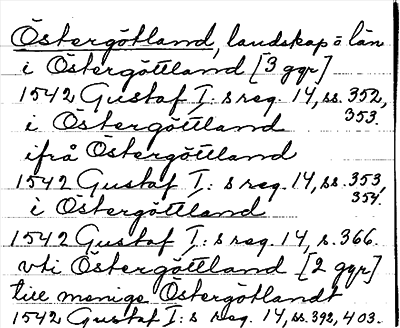 Östergötland, landskap o län
i Östergöttland [3 ggr]
1542 Gustaf I: s reg. 14, ss. 352,
353.
i Östergöttland
ifrå Östergöttland
1542 Gustaf I: s reg. 14, ss. 353,
354.
i Östergöttland
1542 Gustaf I: s reg. 14, s. 366.
vti Östergöttland [2 ggr]
till menige Östergötlandt
1542 Gustaf I: s reg. 14, ss. 392, 403.